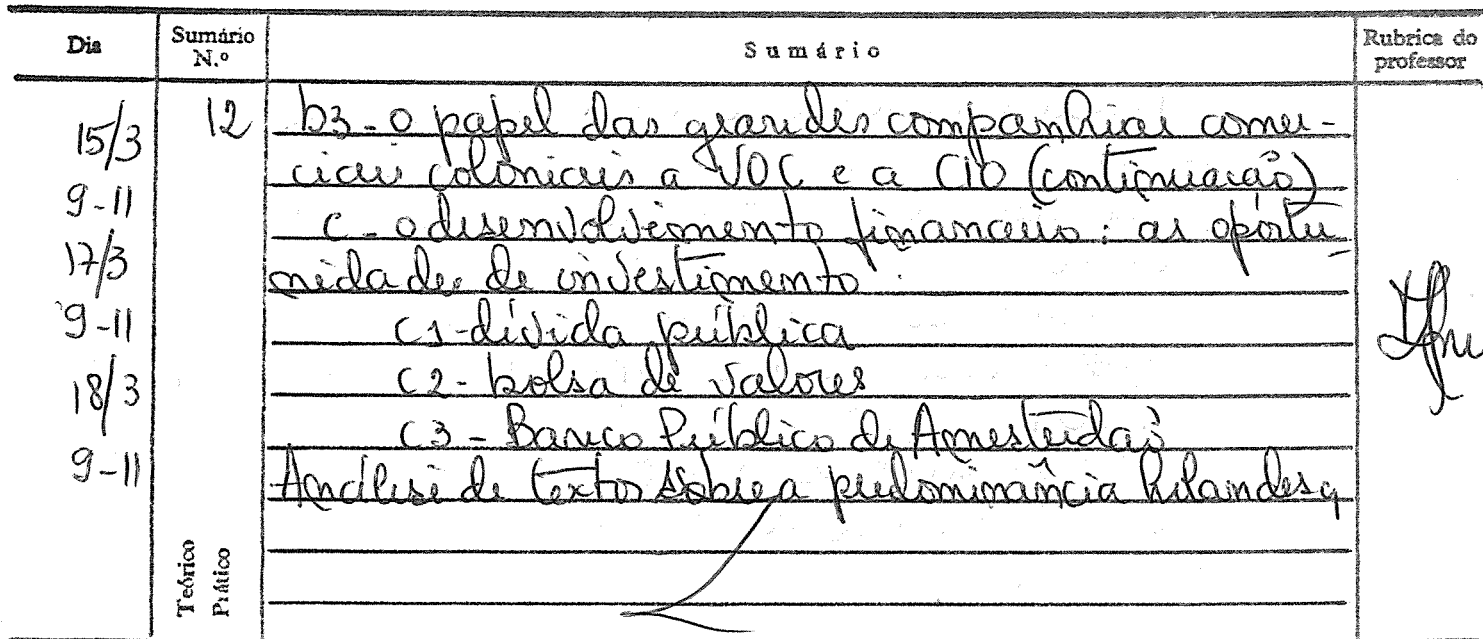 Dia Sumário N.º Sumário Rubrica do professor
15/3 12 b3 - o papel das grandes companhias comer-
ciais coloniais a VOC e a CIO (continuação)
9-11
C - o desenvolvimento financeiro: as oportu
17/3 nidades de investimento.
9-11 C1 - dívida pública
18/3 C2 - bolsa de valores
C3 - Banco Público de Amesterdão
9-11 Análise de textos sobre a predominância holandesa
Teórico
Prático